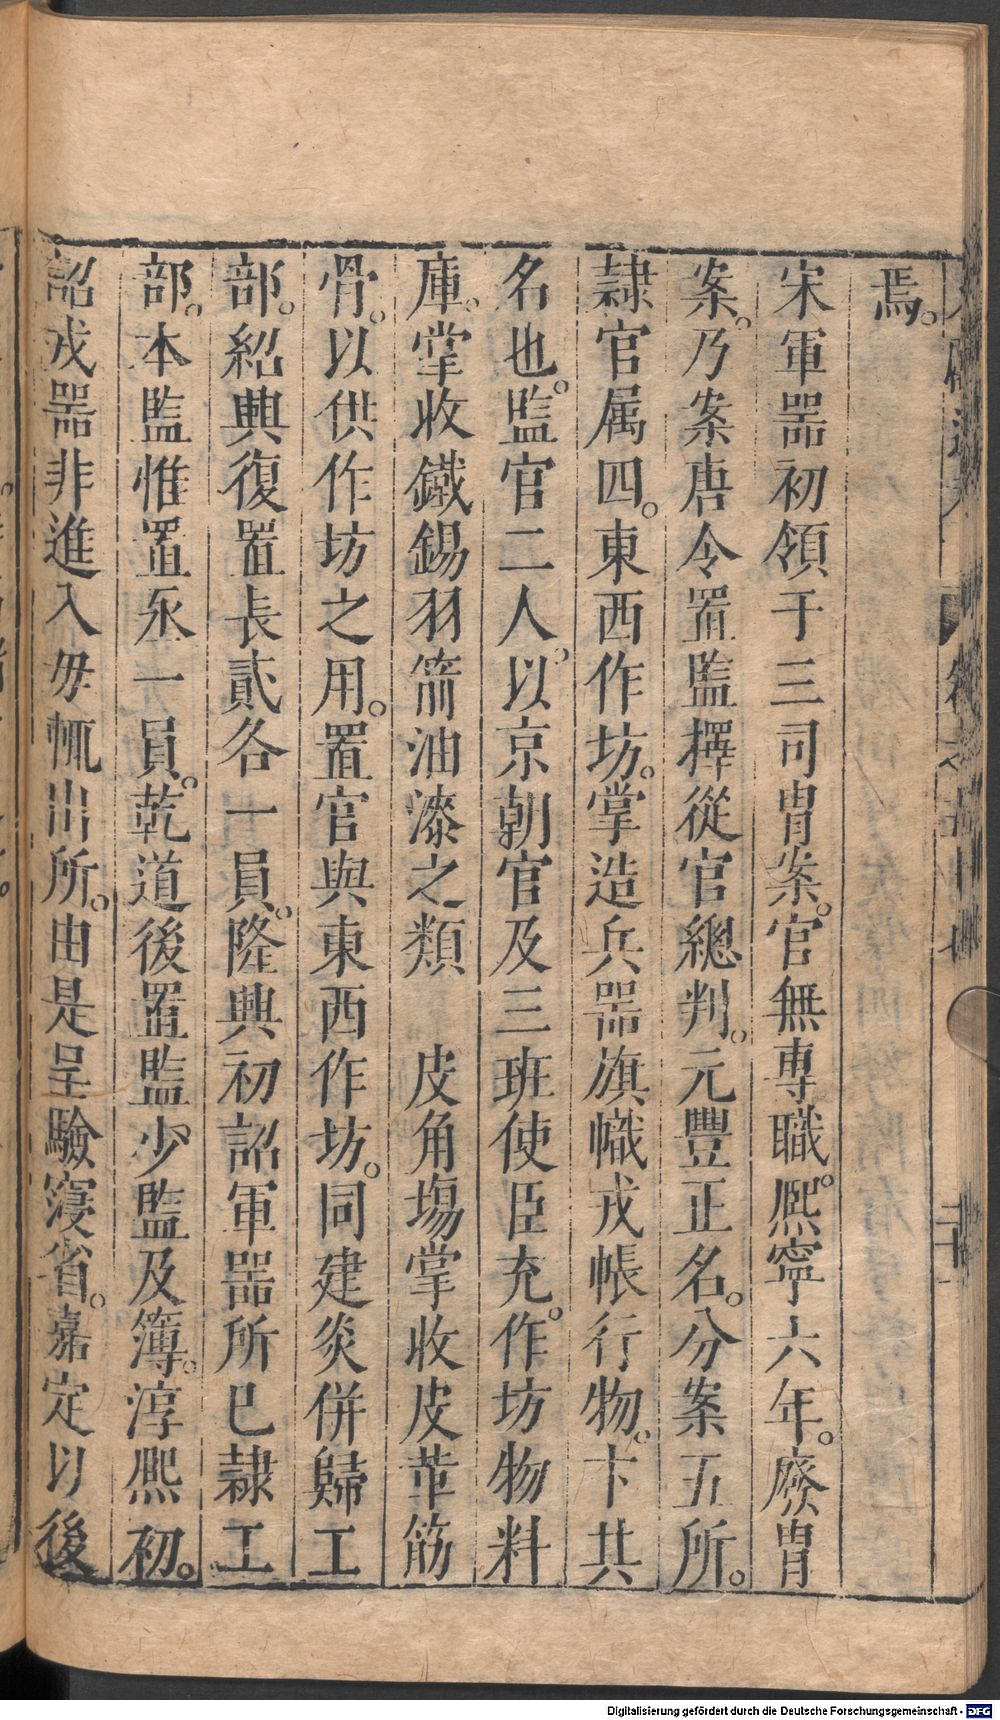 焉。
宋軍器初領于三司胄案。官無專職。熈寧六年。廢胄
案。乃案唐令置監擇從官總判。元豐正名。分案五所。
隷官属四。東西作坊。掌造兵器旗幟戎帳行物。卞共
名也。監官二人。以京朝官及三班使臣充。作坊物料
庫。掌收鐵錫羽箭油漆之類　皮角場掌收皮革筋
骨。以供作坊之用。置官與東西作坊。同建炎併歸工
部。紹興復置長貳各一員。隆興初詔軍器所已隷工
部。本監惟置丞一員。乾道後置監少監及簿。淳熈初。
詔戎器非進入毋輒出所。由是呈驗寖省。嘉定以後
Digitalisierung gefördert durch die Deutsche Forschungsgemeinschaft - DFG